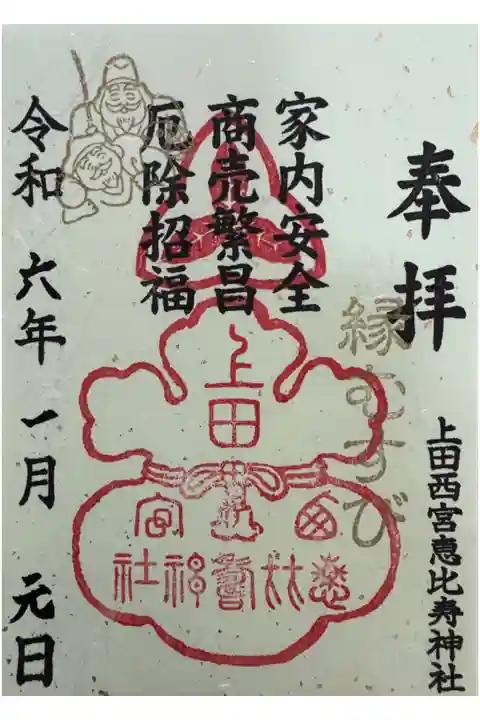 奉拝
上田西宮恵比寿神社
縁むすび
家内安全
商売繁昌
厄除招福
上田
西宮
恵比寿神社
令和 六年 一月 元日